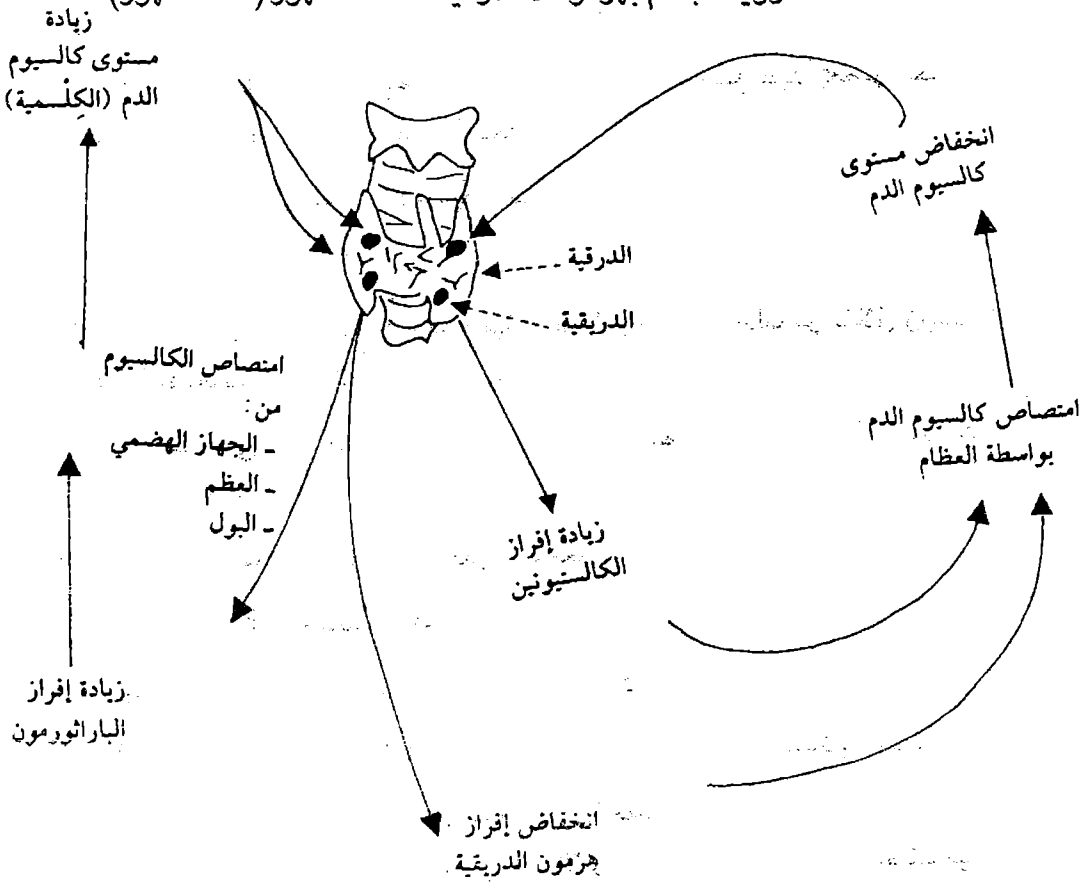 زيادة
مستوى كالسيوم
الدم (الكِلْسمية)
انخفاض مستوى
كالسيوم الدم
الدرقية
الدريقية
امتصاص الكالسيوم
من:
ـ الجهاز الهضمي
ـ العظم
ـ البول
امتصاص كالسيوم الدم
بواسطة العظام
زيادة إفراز
الكالستيونين
زيادة إفراز
الباراثورمون
انخفاض إفراز
هرمون الدريقية